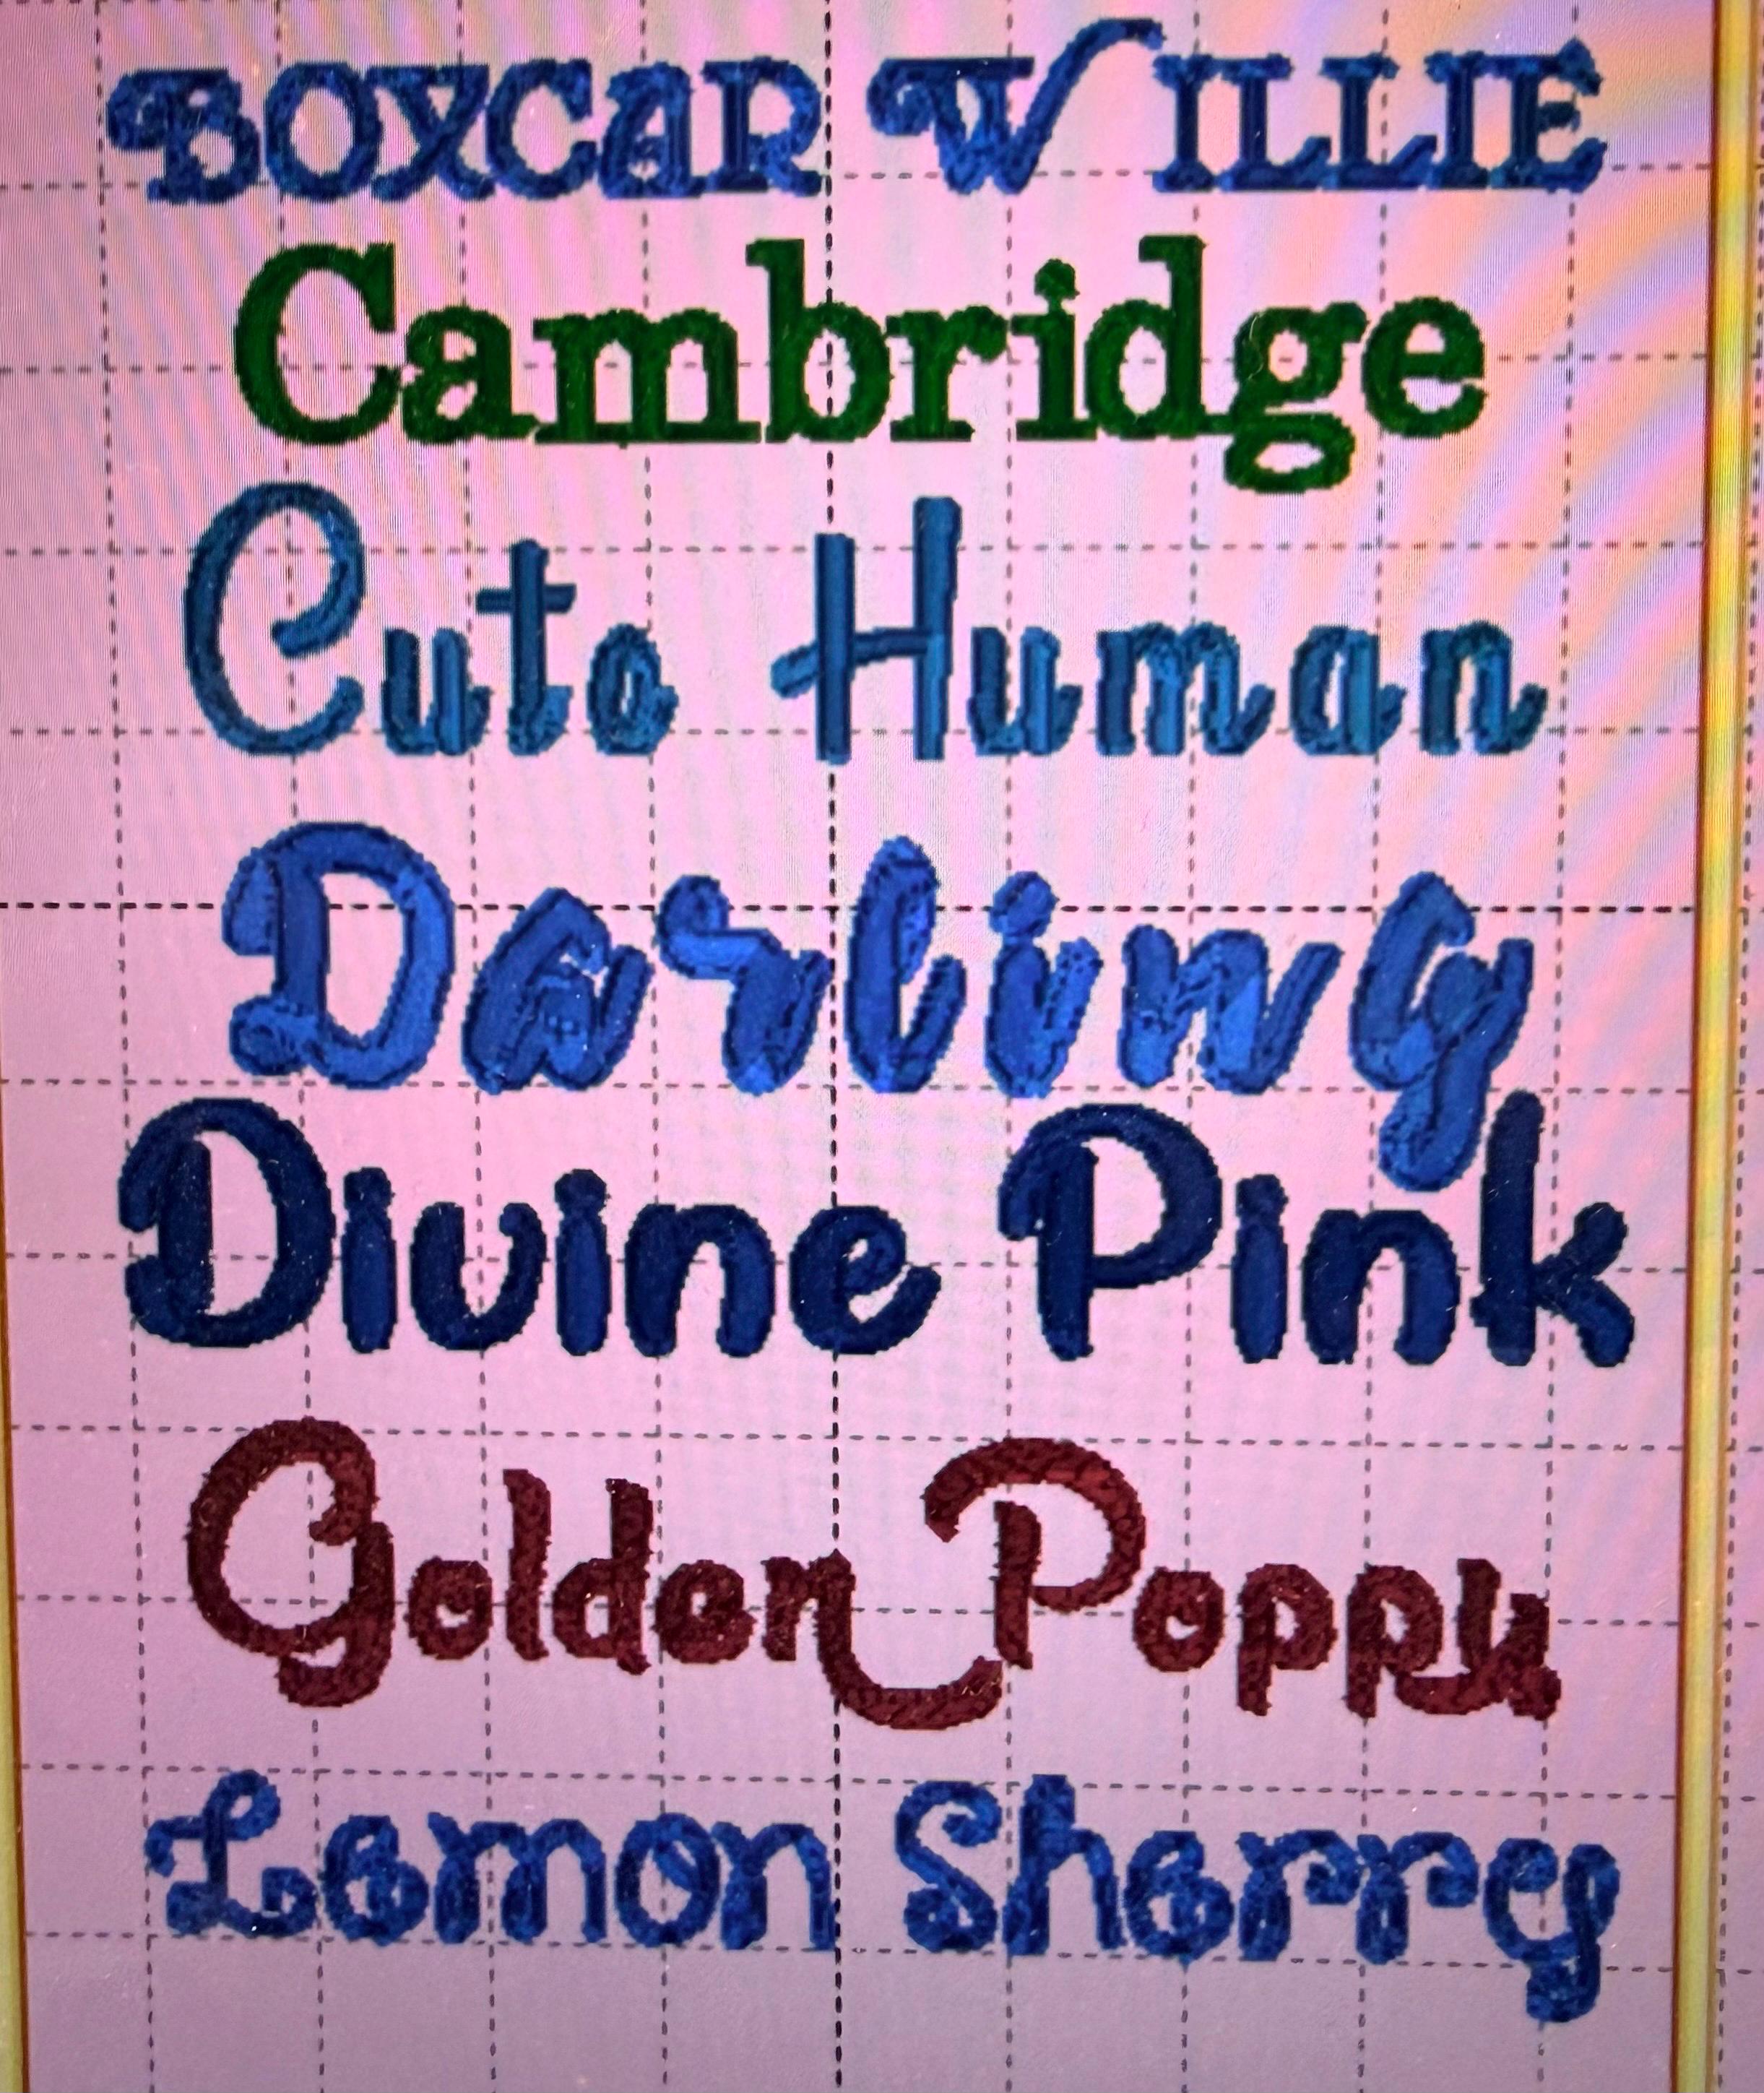 BOXCAR WILLIE
Cambridge
Cute Human
Darling
Divine Pink
Golden Poppy
Lemon Sherry